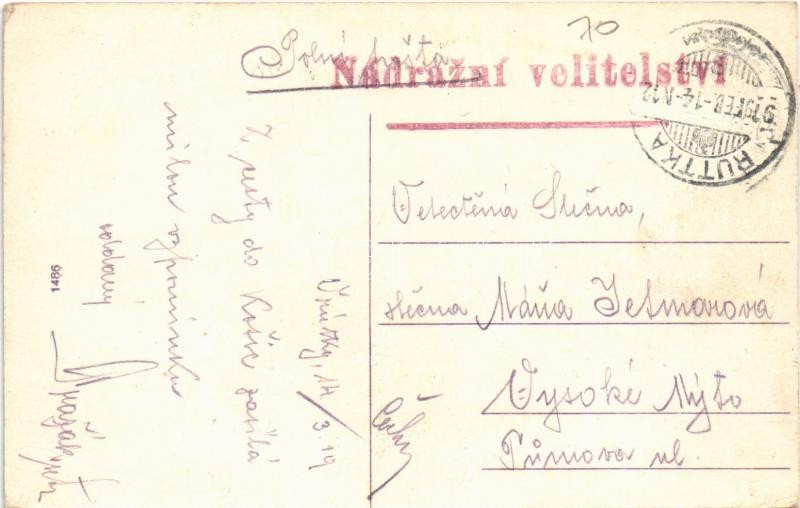 70
Polní pošta
Nádražní velitelství
RUTTKA
919 FEB.-14-N.12
Vrútky, 14/3.19
Z cesty do Košic zasílá
milou vzpomínku
oddaný
1486
Velectěná Slečna,
slečna Máňa Jetmarová
Vysoké Mýto
Tůmova ul.
Čechy